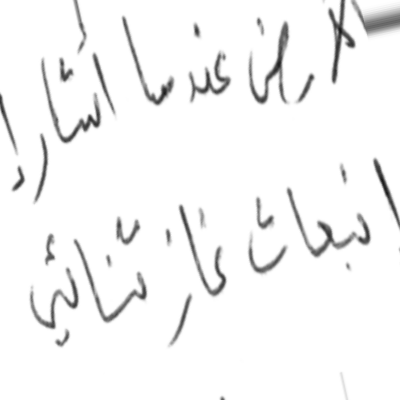 لأرض عندما أشار إ
انبعاث غاز ثنائي